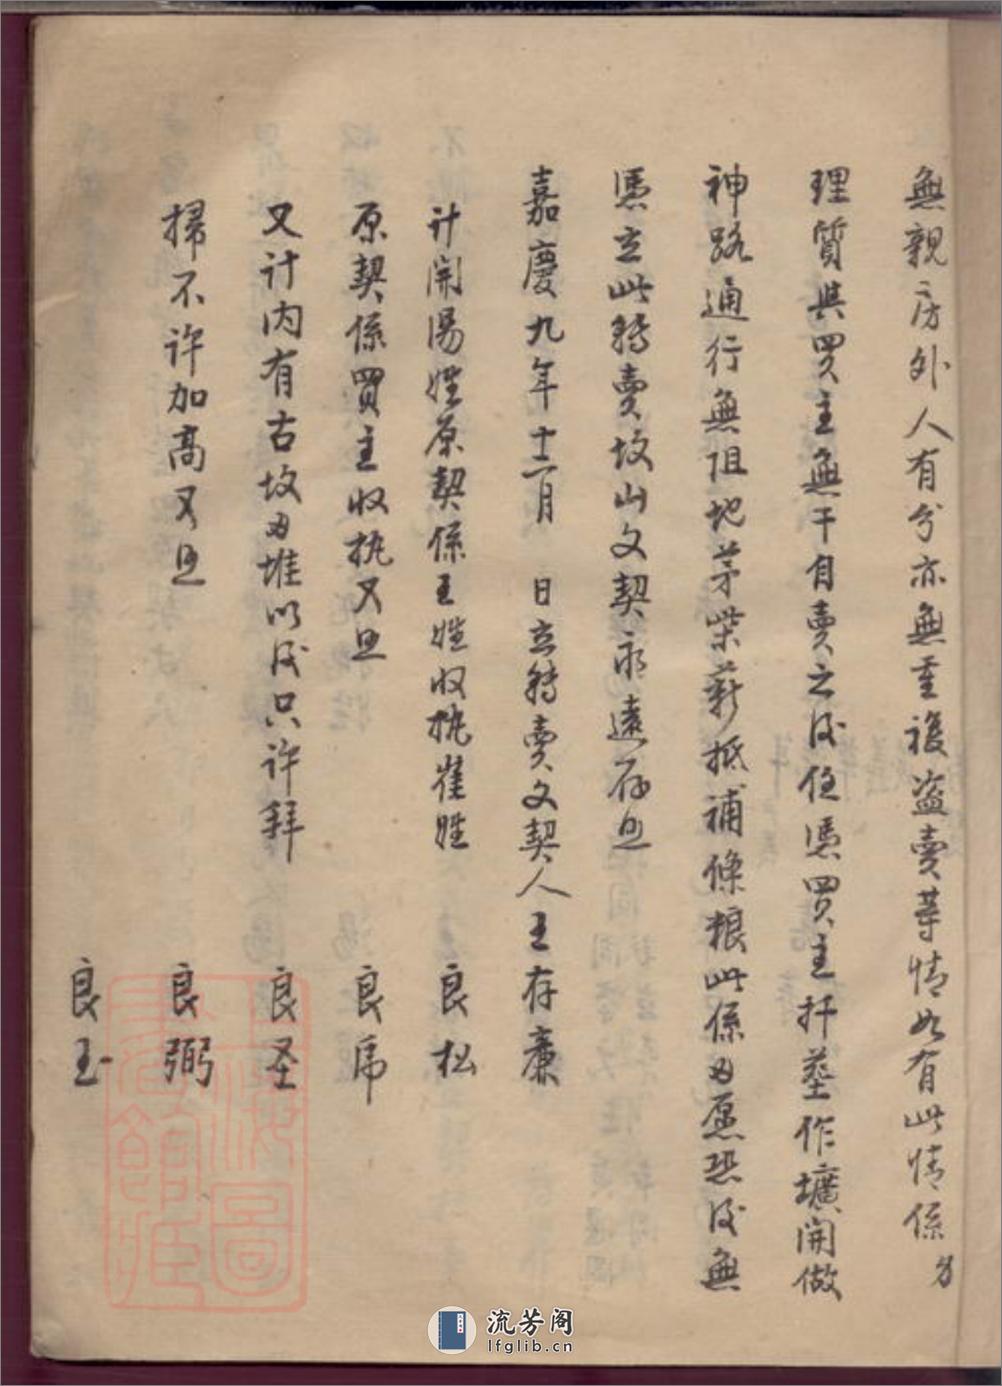 無親房外人有分亦無重複盗賣等情如有此情係
理質與買主無干自賣之後任憑買主扦塟作壙開做
神路通行無阻地茅柴薪抵補條粮此係自愿恐後無
憑立此轉賣坟山文契永遠存照
嘉慶九年十二月 日立轉賣文契人王存廉
計開湯姓原契係王姓收执崔姓 良松
原契係買主收执又照 良席
又計内有古坟自堆以後只许拜 良圣
掃不许加高又照 良弼
良玉
流芳阁
lfglib.cn